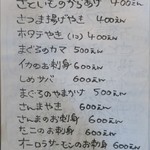 さといものからあげ 400えん
さつま揚げやき 400えん
ホタテやき(1コ) 400えん
まぐろのカマ 500えん
イカのお刺身 600えん
しめサバ 600えん
まぐろのやまかけ 500えん
さんまやき 600えん
さんまのお刺身 600えん
たこのお刺身 600えん
オーロラサーモンのお刺身 600